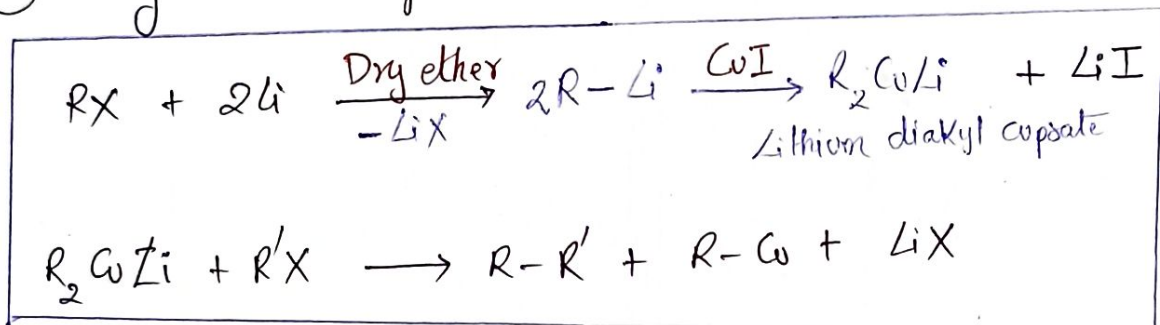 RX + 2Li Dry ether → -LiX 2R-Li CuI → R₂CuLi + LiI
Lithium diakyl cuprate
R₂CuLi + R'X → R-R' + R-Cu + LiX